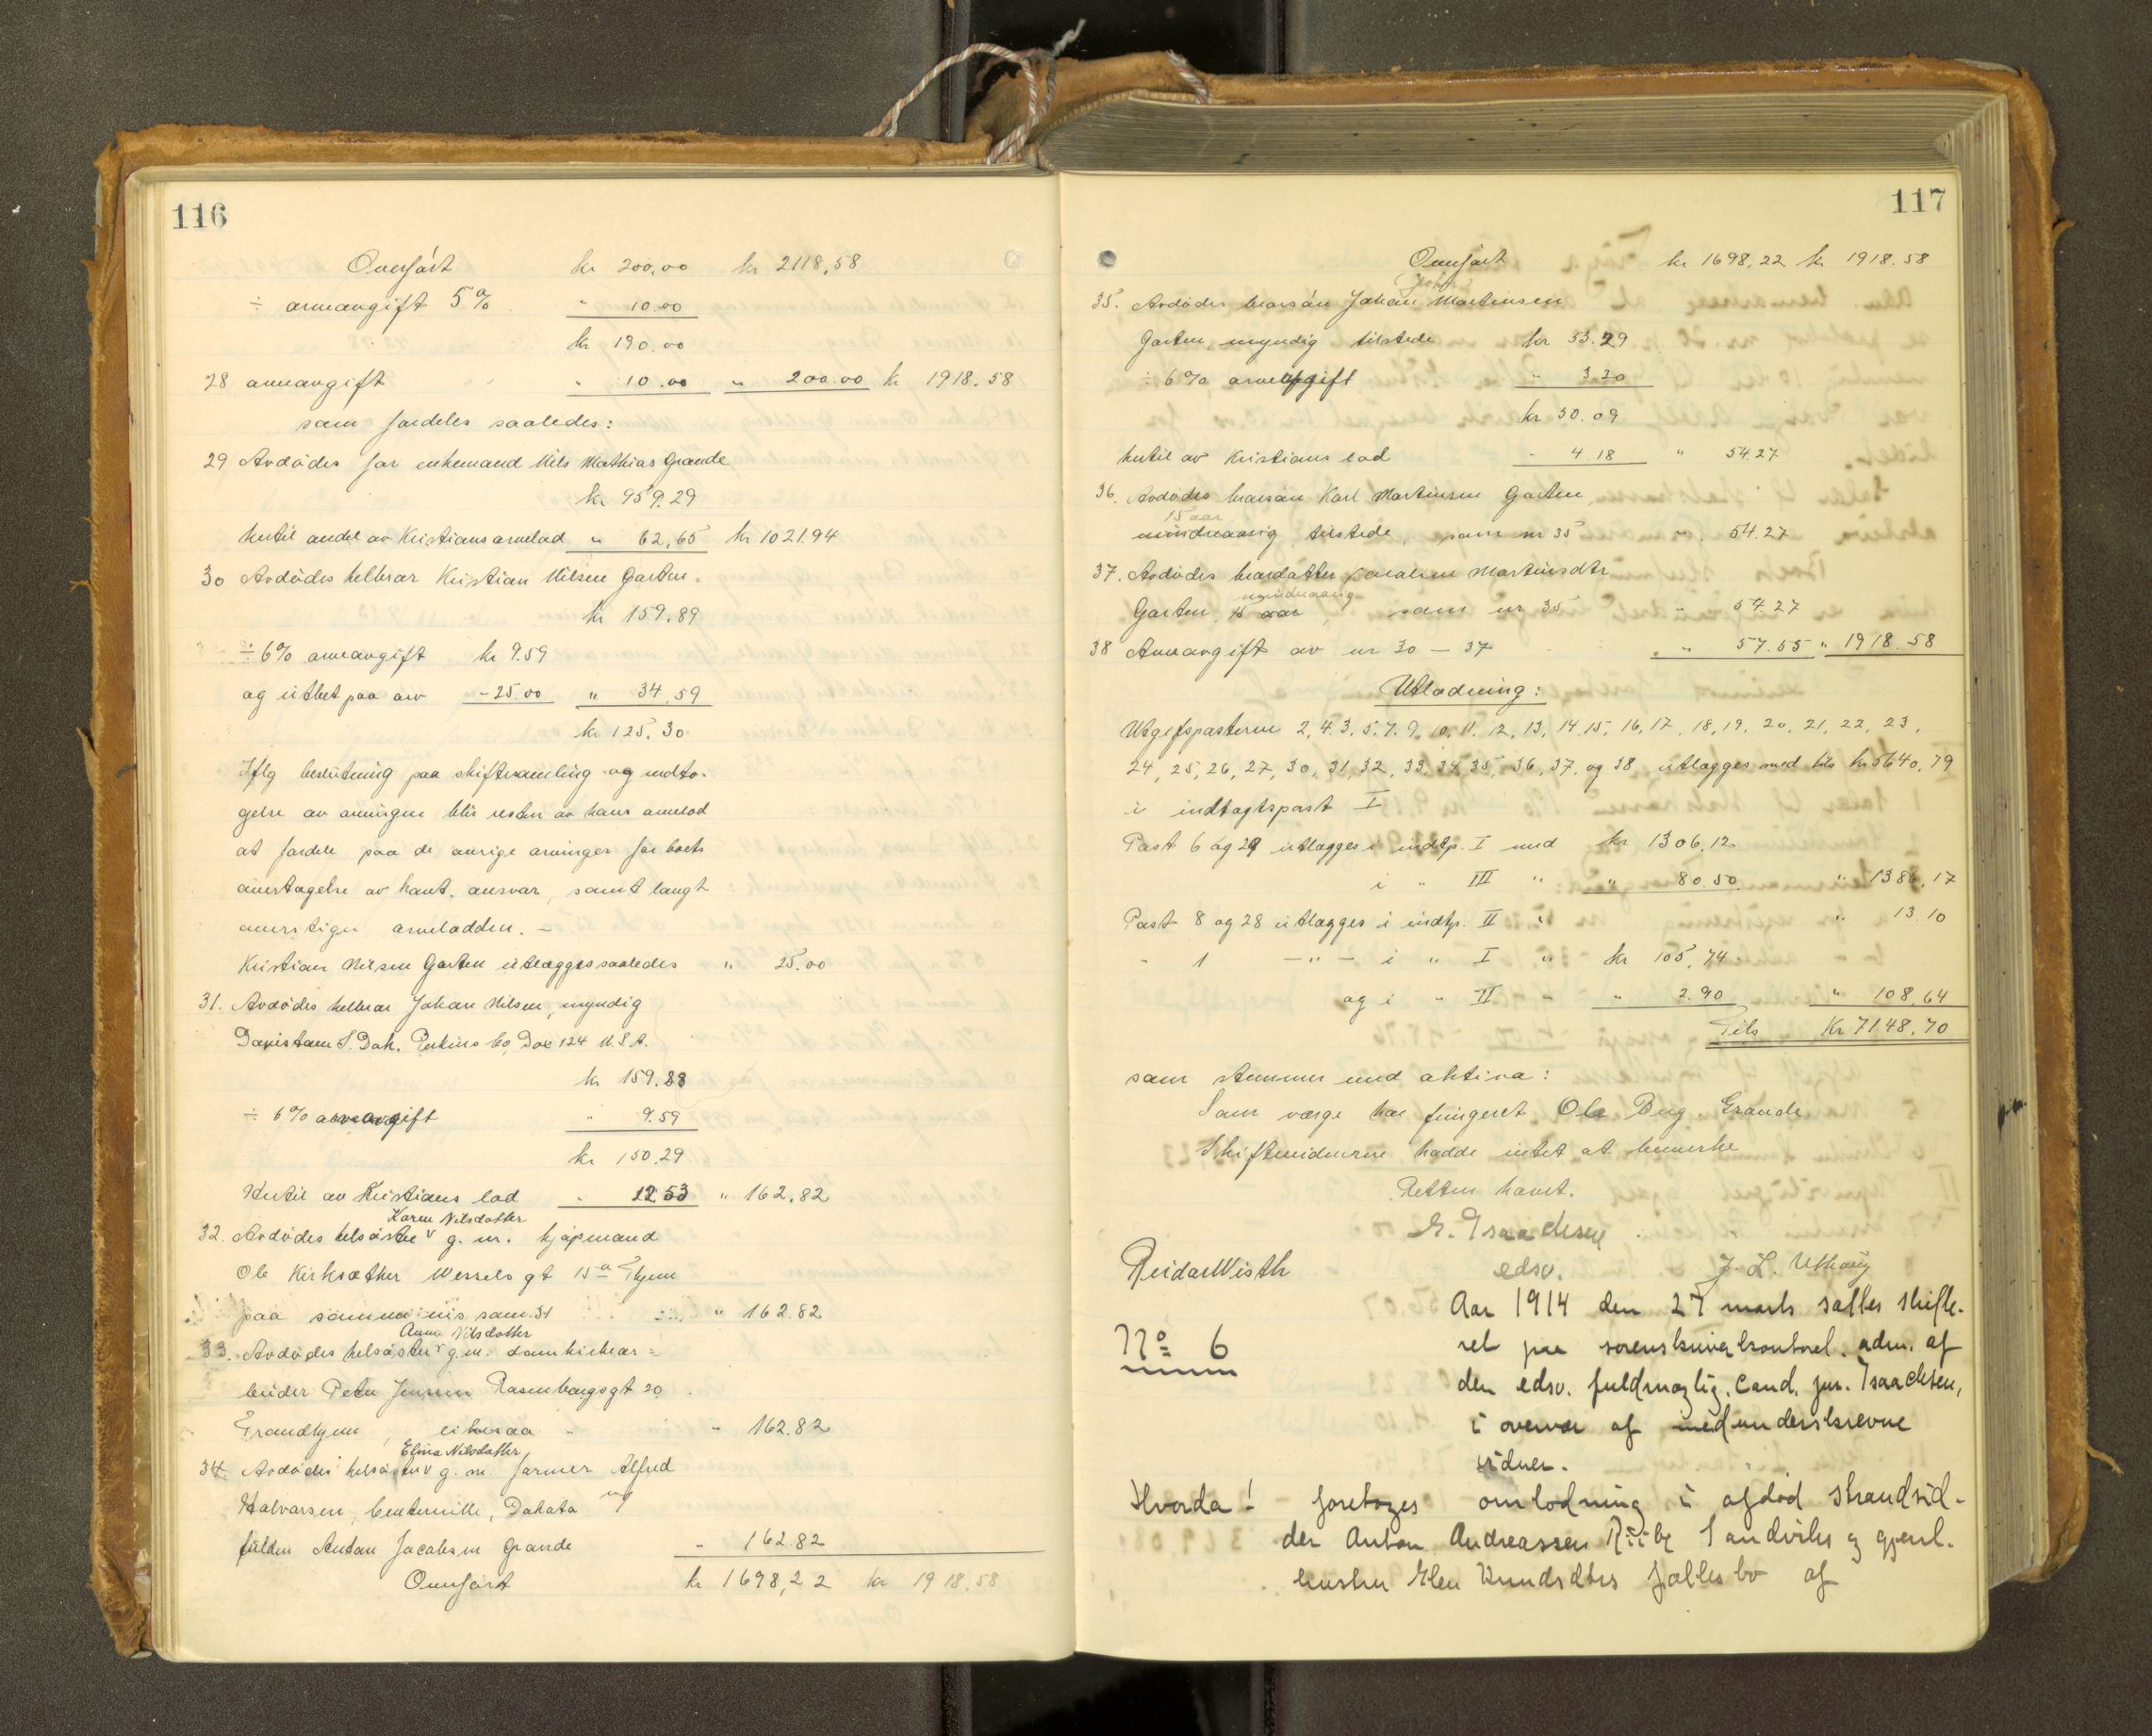 116
Overført kr 200,00 kr 2118,58
÷ arveavgift 5% " 10.00
kr 190.00
28 arveavgift " 10.00 " 200.00 kr 1918.58
som fordeles saaledes:
29 Avdødes far enkemand Nils Mathias Grande
kr 959.29
hertil andel av Kristians arvelod " 62,65 kr 1021.94
30 Avdødes helbror Kristian Nilsen Garten.
kr 159.89
÷ 6% arveavgift kr 9.59
og utbet paa arv - 25.00 " 34.59
kr 125.30
Iflg beslutning paa skiftesamling og vedta-
gelse av arvingen blir resten av hans arvelod
at fordele paa de øvrige arvinger for boets
overtagelse av hans ansvar, samt langt
overstiger arvelodden. -
Kristian Nilsen Garten utlægges saaledes " 25.00
31. Avdødes helbror Johan Nilsen, myndig
S. Dak. Perkins Co. 124 U.S.A.
kr 159.88
÷ 6% arveavgift " 9.59
kr 150.29
Hertil av Kristians lod " 12 53 " 162.82
Karen Nilsdatter
32. Avdødes helsøster v g. m. kjøpmand
Ole Kirksæther Wesselsgt 15a Thjem
paa samme vis som 31 " 162.82
Anna Nilsdatter
33. Avdødes helsøster v g.m. damkjelear-
beider Peter Jensen Rosenborgsgt 20
Trondhjem, likesaa " 162.82
Elina Nilsdatter
34. Avdødes helsøster v g. m. farmer Alfred
Halvorsen, Centerville, Dakota ug
fuldm Anton Jacobsen Grande " 162.82
Overført kr 1698,22 kr 1918.58
117
Overført kr 1698,22 kr 1918.58
35. Avdødes brorsøn Johan Martinsen
Garten, myndig tilstede kr 33.29
÷ 6% arveafgift " 3.20
kr 30.09
hertil av Kristians lod " 4 18 " 54.27
36. Avdødes brorsøn Karl Martinsen Garten
15 aar
mindreaarig, tilstede, som nr 35 " 54.27
37. Avdødes brordatter Martinsdtr
mindreaarig
Garten, 15 aar, som nr 35 " 54.27
38 Arveavgift av nr 30 – 37 " 57.55 " 1918.58
Utlodning:
Utgiftsposterne 2, 4. 3. 5. 7. 9. 10. 11. 12, 13, 14 15, 16, 17, 18, 19, 20, 21, 22, 23,
24, 25, 26, 27, 30, 31, 32, 33, 34, 35, 36, 37, og 38, utlægges med tils kr 5640,79
i indtægtspost I
Post 6 og 29 utlægges i indtp. I med kr 1306.12
i " III " " 80.50 " 1386,17
Post 8 og 28 utlægges i indtp. II " " 13.10
" 1 — " — i " I " kr 105,74
og i " II " " 2.90 " 108,64
Tils Kr 7148,70
som stemmer med aktiva:
Som værge har fungeret Ole Berg. Grande
Skiftevidnerne hadde intet at bemerke
Retten hævet.
G. Isaachsen
Reidar Wisth edsv. J. L. Uthaug
Aar 1914 den 27 marts sattes skifte-
No 6 ret paa sorenskriverkontoret. adm. af
den edsv. fuldmægtig. Cand. jur. Isaachsen,
i overvær af medunderskrevne
vidner.
Hvorda! foretoges omlodning i afdød strandsid-
der Anton Andreassen Sandviks og gjenl.
enke Elen Knudsdtrs fællesbo af